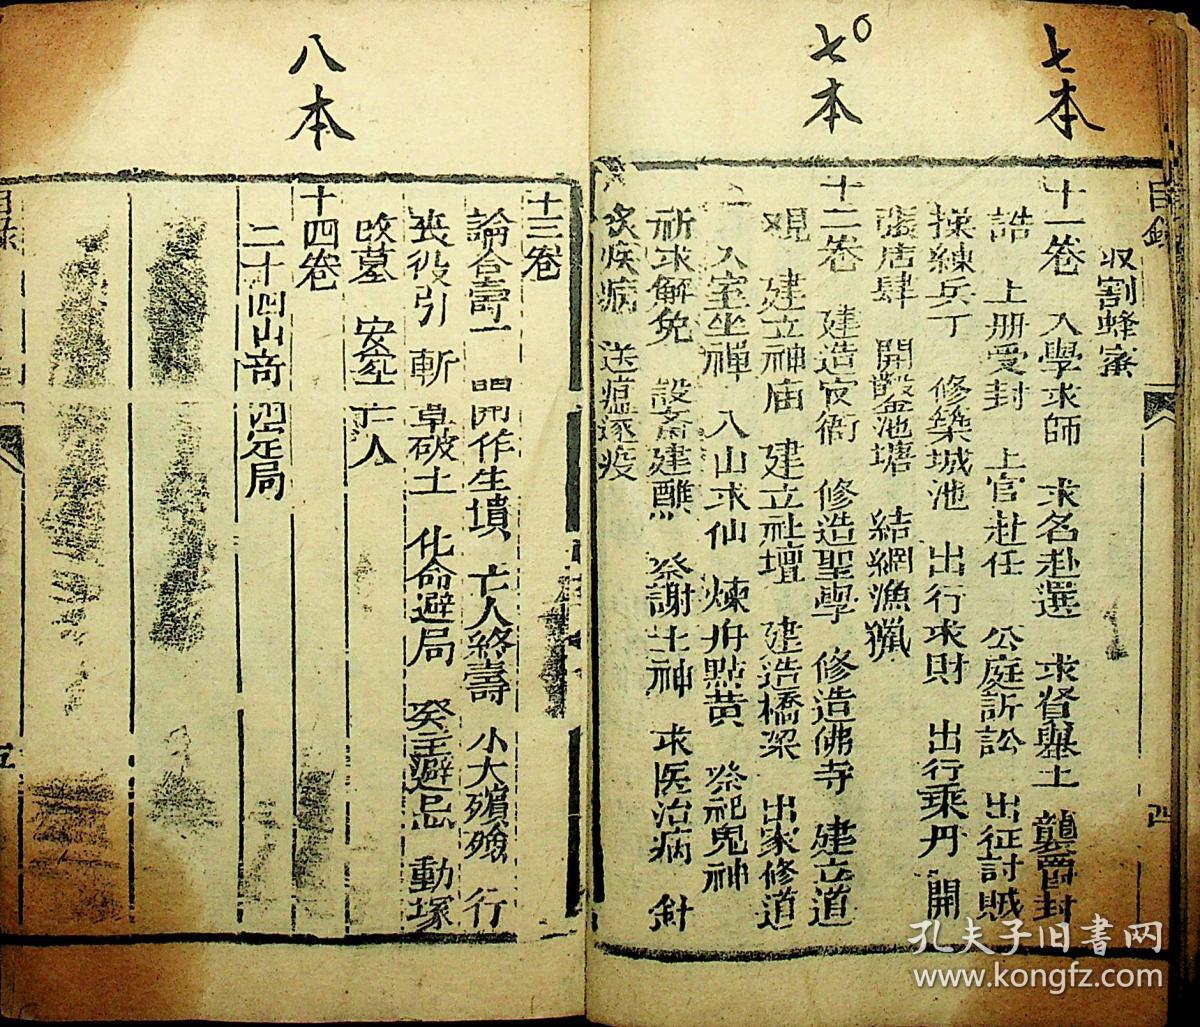 七本
七〇本
八本
目錄
收割蜂蜜
十一卷 入學求師 求名赴選 求賢舉士 襲爵封
誥 上册受封 上官赴任 公庭訴訟 出征討賊
操練兵丁 修築城池 出行求財 出行乘舟 開
張店肆 開鑿池塘 結網漁獵
十二卷 建造官衙 修造聖學 修造佛寺 建立道
觀 建立神庙 建立社壇 建造橋梁 出家修道
入室坐禅 入山求仙 煉丹點黄 祭祀鬼神
祈求解免 設斎建醮 祭謝土神 求医治病 針
炙疾病 送瘟逐疫
四
十三卷
論合壽 開作生墳 亡人終壽 小大殯殮 行
喪役引 斬草破土 化命避局 癸主避忌 動塚
改墓 安葬亡人
十四卷
二十四山竒四定局
目錄
五
孔夫子旧書网
www.kongfz.com